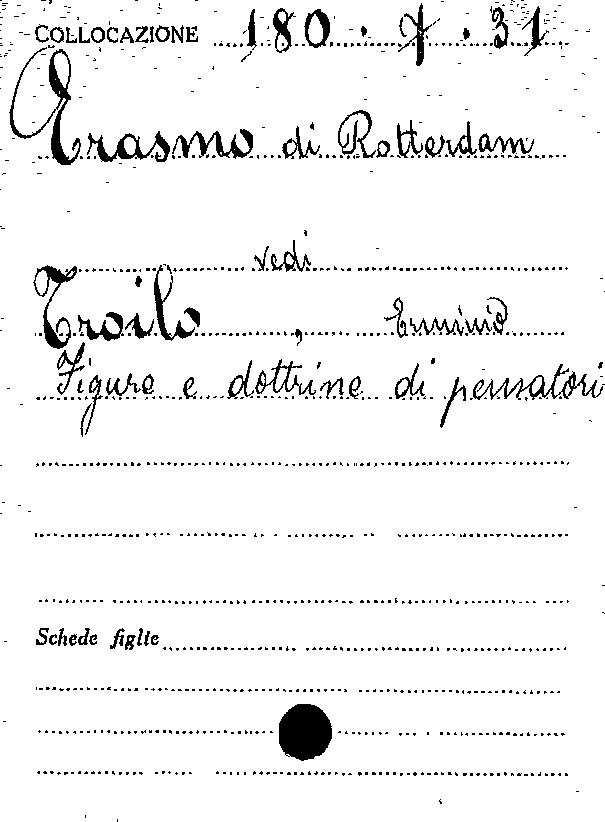 COLLOCAZIONE 180.7.31
Erasmo di Rotterdam
vedi
Troilo, Erminio
Figure e dottrine di pensatori
Schede figlie